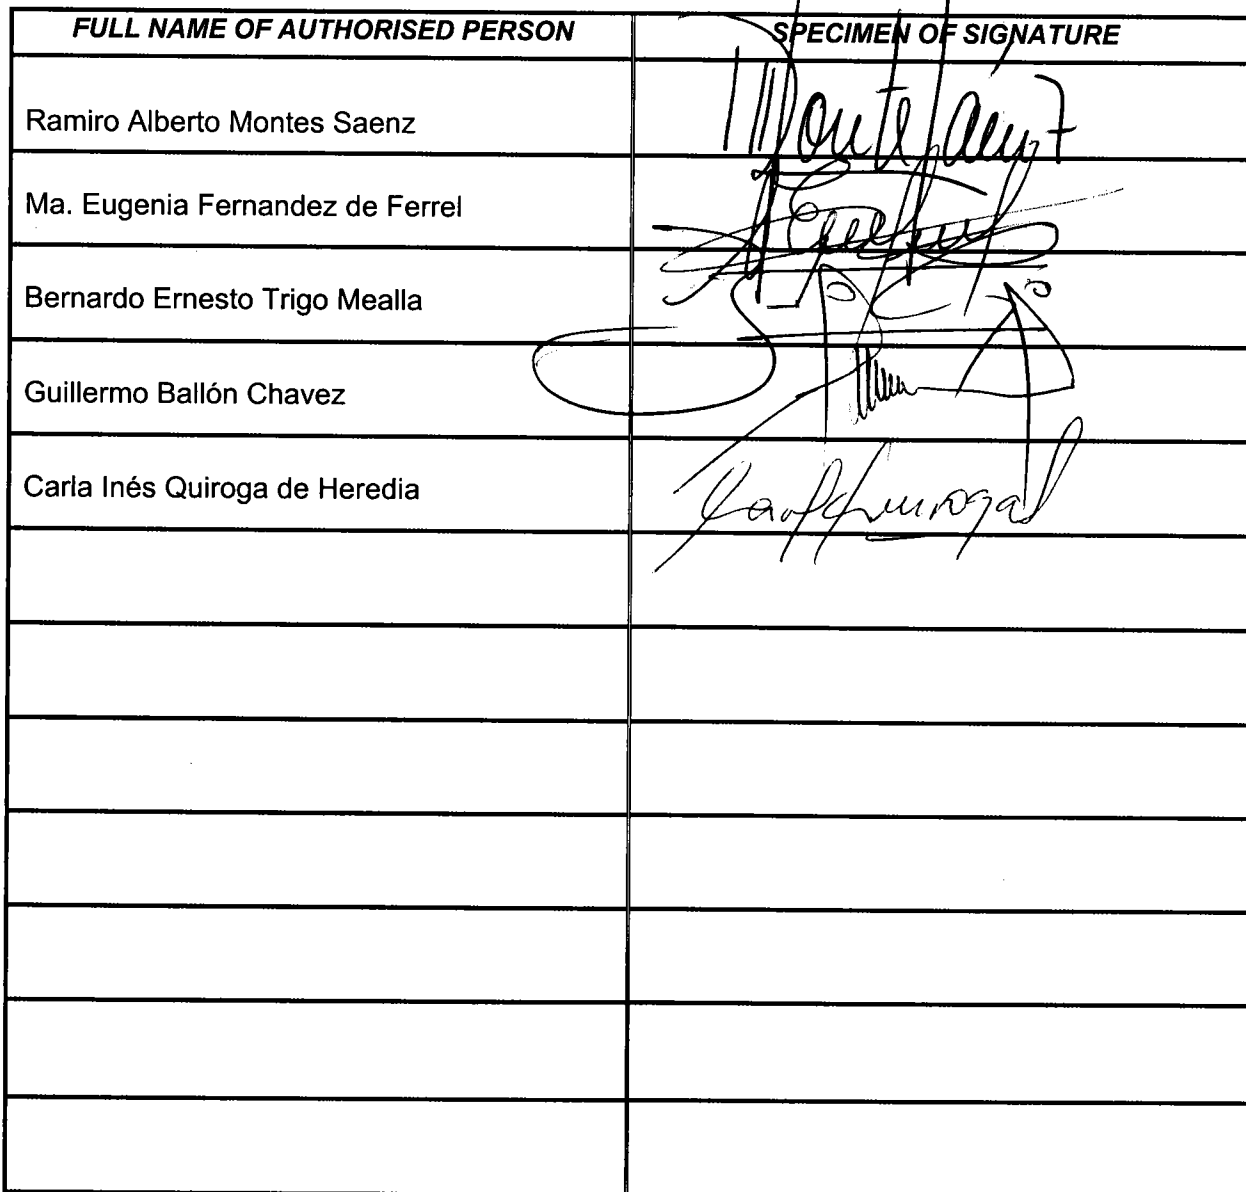 FULL NAME OF AUTHORISED PERSON SPECIMEN OF SIGNATURE
Ramiro Alberto Montes Saenz
Ma. Eugenia Fernandez de Ferrel
Bernardo Ernesto Trigo Mealla
Guillermo Ballón Chavez
Carla Inés Quiroga de Heredia